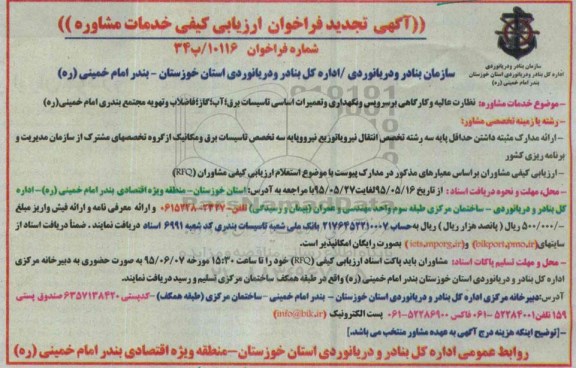 ((آگهی تجدید فراخوان ارزیابی کیفی خدمات مشاوره))
شماره فراخوان ۱۰۱۱۶/پ۳۴
سازمان بنادر و دریانوردی
اداره کل بنادر و دریانوردی استان خوزستان
بندر امام خمینی (ره)
سازمان بنادر ودریانوردی /اداره کل بنادر ودریانوردی استان خوزستان - بندر امام خمینی (ره)
-موضوع خدمات مشاوره: نظارت عالیه وکارگاهی برسرویس ونگهداری وتعمیرات اساسی تاسیسات برق/آب/گاز/فاضلاب وتهویه مجتمع بندری امام خمینی(ره)
-رشته یا زمینه تخصصی مشاور:
-ارائه مدارک مثبته داشتن حداقل پایه سه رشته تخصص انتقال نیرووتوزیع نیرووپایه سه تخصص تاسیسات برق ومکانیک ازگروه تخصصهای مشترک از سازمان مدیریت و
برنامه ریزی کشور
-ارزیابی کیفی مشاوران براساس معیارهای مذکور در مدارک پیوست با موضوع استعلام ارزیابی کیفی مشاوران (RFQ)
-محل، مهلت و نحوه دریافت اسناد: از تاریخ ۹۵/۰۵/۱۶لغایت۹۵/۰۵/۲۷با مراجعه به آدرس: استان خوزستان- منطقه ویژه اقتصادی بندر امام خمینی (ره)-اداره
کل بنادر و دریانوردی - ساختمان مرکزی طبقه سوم واحد مهندسی و عمران (پیمان و رسیدگی) تلفن ۲۴۴۷-۰۶۱۵۲۲۸ و ارائه معرفی نامه و ارائه فیش واریز مبلغ
-/۵۰۰/۰۰۰ ریال ( پانصد هزار ریال) به‌حساب ۲۱۷۶۴۵۲۲۱۰۰۰۷ بانک ملی شعبه تاسیسات بندری کد شعبه ۶۹۹۱ اسناد دریافت نمایند. ضمناً دریافت اسناد از
سایتهای(bikport.pmo.ir) و(iets.mporg.ir) بصورت رایگان امکانپذیر است.
-محل و مهلت تسلیم پاکات اسناد: مشاوران باید پاکت اسناد ارزیابی کیفی (RFQ) خود را تا ساعت ۱۵:۳۰ مورخه ۹۵/۰۶/۰۷ به صورت حضوری به دبیرخانه مرکزی
اداره کل بنادر و دریانوردی استان خوزستان بندر امام خمینی (ره) واقع در طبقه همکف ساختمان مرکزی تسلیم و رسید دریافت نمایند.
آدرس:دبیرخانه مرکزی اداره کل بنادر و دریانوردی استان خوزستان - بندر امام خمینی - ساختمان مرکزی (طبقه همکف) -کدپستی ۶۳۵۷۱۳۸۴۲۰ صندوق پستی
۱۵۹ تلفن ۵۲۲۸۴۰۰۱-۰۶۱ فاکس ۵۲۲۸۶۹۰۰-۰۶۱ پست الکترونیک (info@bik.ir)
-[توضیح اینکه هزینه درج آگهی به عهده مشاور منتخب می باشد.]
روابط عمومی اداره کل بنادر و دریانوردی استان خوزستان-منطقه ویژه اقتصادی بندر امام خمینی (ره)